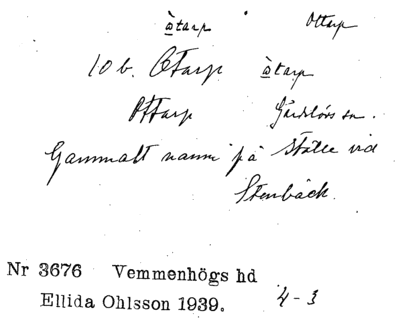 àtarp Ottarp
10 b. Otarp àtarp
Ottarp Gärdslövs sn.
Gammalt namn på ställe vid
Stenbäck.
Nr 3676 Vemmenhögs hd
Ellida Ohlsson 1939. 4-3